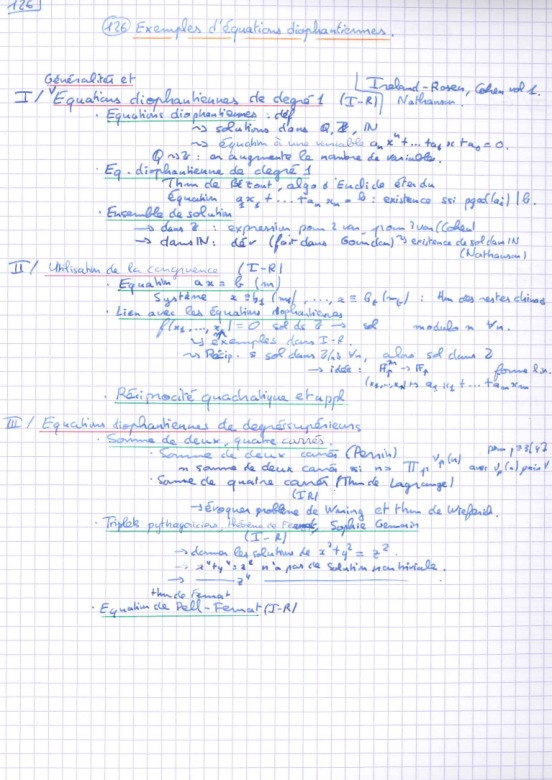 126
(126) Exemples d'équations diophantiennes.
Généralités et
Ireland-Rosen, Cohen vol 1.
I/ Equations diophantiennes de degré 1 (I-R) Nathanson.
· Equations diophantiennes : déf
~> solutions dans Q, Z, IN
~> équation à une variable a_n x^n + ... + a_1 x + a_0 = 0.
Q ~> Z : on augmente le nombre de variables.
· Eq. diophantienne de degré 1
Thm de Bézout, algo d'Euclide étendu
équation a_1x_1 + ... + a_n x_n = b : existence ssi pgcd(a_i) | b.
· Ensemble de solution
-> dans Z : expression pour 2 var, pour ? var (Cohen)
-> dans IN : dév (fait dans Gourdon) ~> existence de sol dans IN
(Nathanson)
II/ Utilisation de la congruence (I-R)
· Equation ax ≡ b (m)
Système x ≡ b_1 (m_1), ..., x ≡ b_t (m_t) : thm des restes chinois
· Lien avec les équations diophantiennes
f(x_1, ..., x_n) = 0 sol ds Z -> sol modulo n ∀n.
~> exemples dans I-R.
~> Récip. sol dans ∀n, alors sol dans Z
-> idée :
· Réciprocité quadratique et appl
III/ Equations diophantiennes de degrés supérieurs
· Somme de deux, quatre carrés.
· Somme de deux carrés (Perrin)
n somme de deux carrés ssi n = ∏ p^{v_p(n)} avec v_p(n) pair pour p ≡ 3[4]
· Somme de quatre carrés (Thm de Lagrange)
(IR)
-> évoquer problème de Waring et thm de Wieferich.
· Triplets pythagoriciens, théorème de Fermat, Sophie Germain
(I-R)
-> donner les solutions de x²+y² = z².
-> x⁴+y⁴ = z² n'a pas de solution non triviale.
-> z⁴
thm de Fermat
· Equation de Pell-Fermat (I-R)